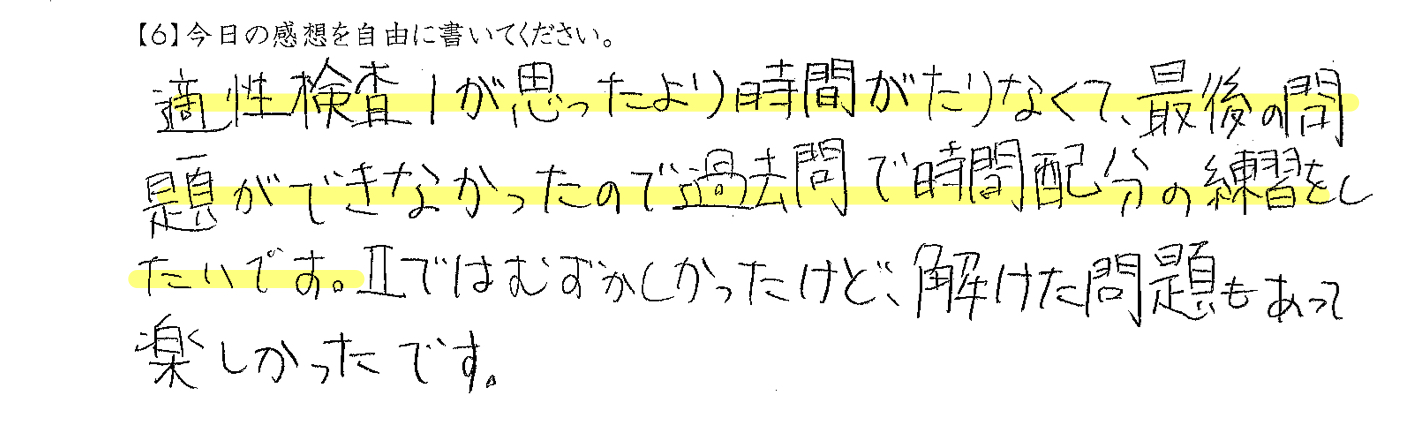 【6】今日の感想を自由に書いてください。
適性検査Iが思ったより時間がたりなくて、最後の問
題ができなかったので過去問で時間配分の練習をし
たいです。IIではむずかしかったけど、解けた問題もあって
楽しかったです。